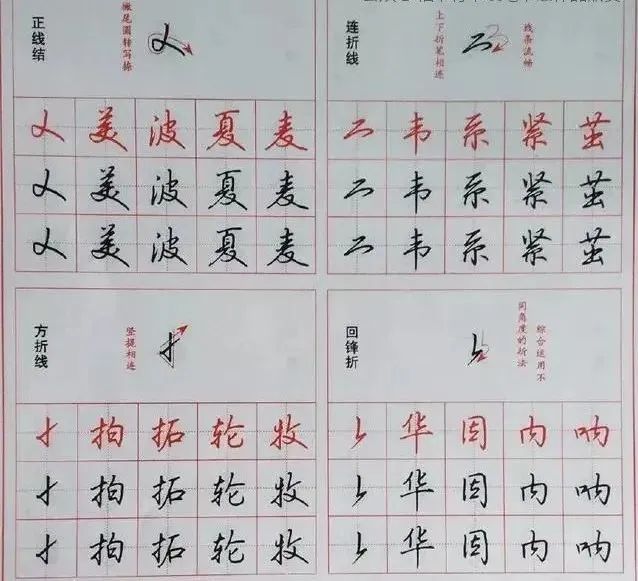 正线结
撇尾圆转写捺
美 波 夏 麦
美 波 夏 麦
美 波 夏 麦
连折线
上下折笔相连
线条流畅
韦 系 紧 茧
韦 系 紧 茧
韦 系 紧 茧
方折线
竖提相连
拍 拓 轮 牧
拍 拓 轮 牧
拍 拓 轮 牧
回锋折
综合运用不
同角度的折法
华 固 内 呐
华 固 内 呐
华 固 内 呐